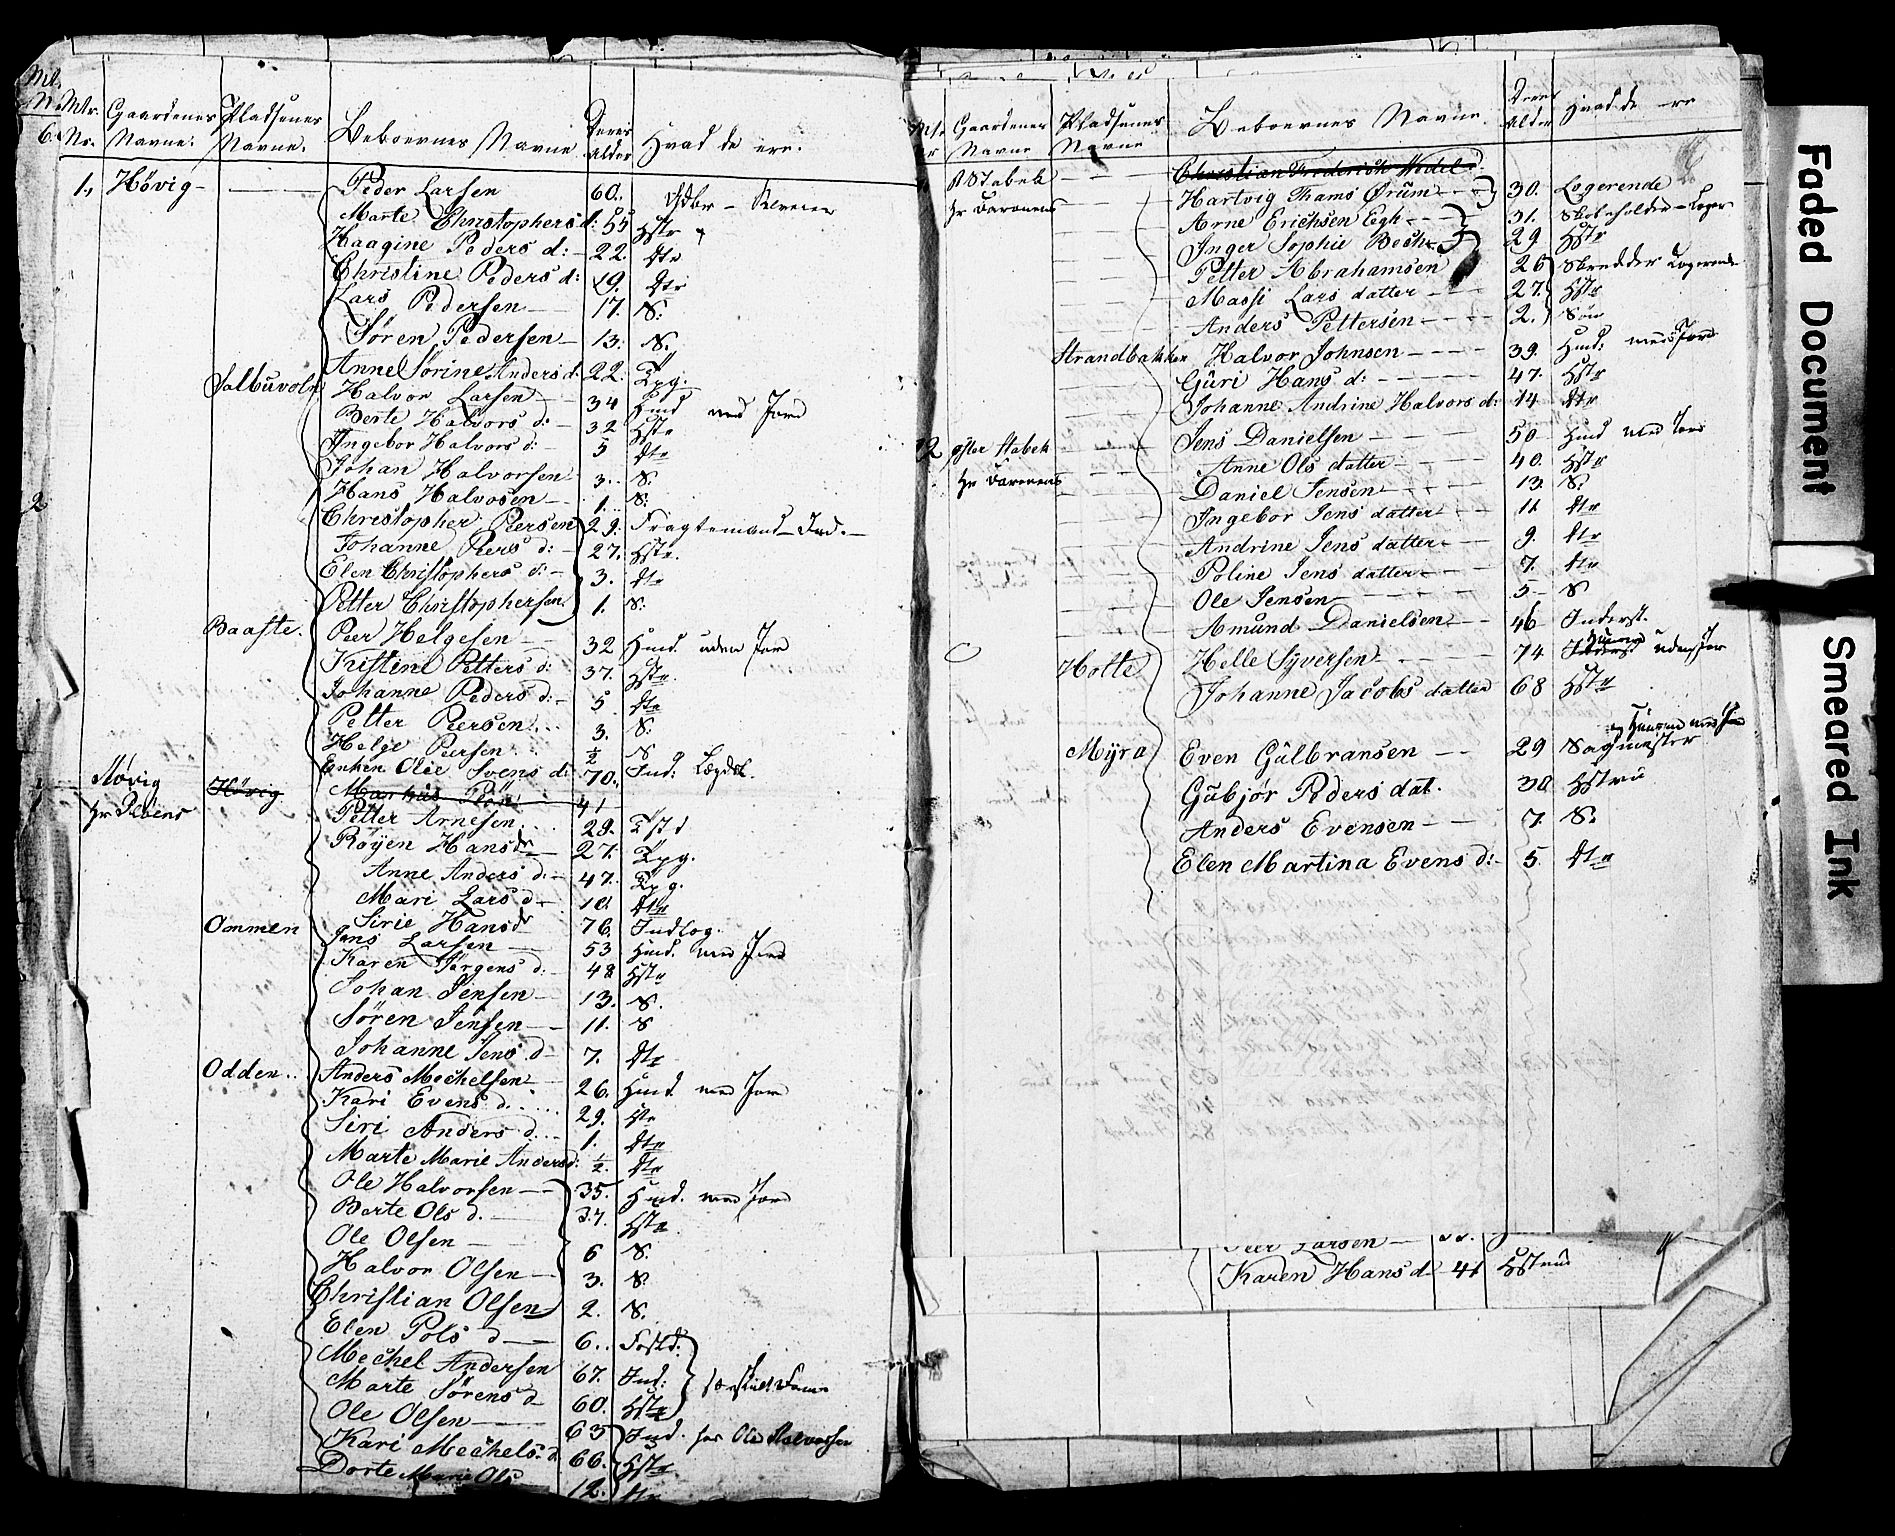 Mtr. Nr. Gaardenes Navne. Pladsenes Navne. Beboernes Navne Deres Alder Hvad de ere.
1, Hövig - Peder Larsen 60.
Marte Christophers d: 55 Hstr
Haagine Peders d: 22. dtr
Christine Peders d: 19. dtr
Lars Pedersen 17. S.
Søren Pedersen 13. S.
Anne Sörine Anders d: 22. Tpg.
Halvor Larsen 34 Husd med Jord
Berte Halvors d: 32 Hstr
Ingebor Halvors d: 5 dtr
Johan Halvorsen 3. S.
Hans Halvosen 1. S.
Christopher Peersen 29. Fragtemand - Ind.
Johanne Peers d: 27. Hstr.
Elen Christophers d: 3. dtr
Petter Christophersen 1. S.
Baaste. Peer Helgesen 32 Husd. uden Jord
Kistine Petters d: 37. Hstr.
Johanne Peders d: 5 dtr
Petter Peersen 3. S.
Helge Peersen ½ S
Enken Olie Svens d: 70. Ind: Lægdsl.
Hövig Hövig Markus 41
Petter Arnesen 29. Tstd
Röyen Hansdr 27. Tpg.
Anne Anders d: 47. Tpg.
Mari Lars d 10. dtr
Sirie Hansdr 76. Indlog.
Oommen Jens Larsen 53 Husd. med Jord
Karen Jørgens d: 48 Hstr
Johan Jensen 13. S.
Søren Jensen 11. S
Johanne Jens d 7. dtr
Odden.. Anders Mechelsen 26. Husd. med Jord
Kari Evens d. 29. Hstr
Siri Anders d. 1. dtr
Marte Marie Anders d: ½. dtr
Ole Halvorsen 35. Husd. med Jord
Berte Ols d. 37. Hstr
Ole Olsen 6 S.
Halvor Olsen 3. S.
Christian Olsen 2. S.
Elen Pols d 6.. Fostd:
Mechel Andersen 67. Ind:
Marte Sørens d 60. Hstr
Ole Olsen 63 Ind. hos Ole Halvorsen
Kari Mechels d 66. Hstr
Dorte Marie Ols 12. dtr
Mtr Gaardenes Navne Pladsenes Navne Beboernes Navne. Deres Alder Hvad de ere
Stabek Christian Frederich Wedel
Hr Baronens Hartvig Thams Ørum 30. Logerende
Arne Erichsen Eegh 31. Skoleholder - Loger
Inger Sophie Bech 29 Hstr
Petter Abrahamsen 26 Skredder Logerende
Massi Lars datter 27. Hstr
Anders Pettersen 2. Sön
Strandbakken Halvor Johnsen 39. Husd: med Jord
Guri Hans d: 47. Hstr
Johanne Andrine Halvors d: 14 dtr
2 øster Stabek Jens Danielsen 50 Husd med Jord
Hr Baronens Anne Ols datter 40. Hstr
Daniel Jensen 13. S.
Ingebor Jens datter 11 dtr
Andrine Jens datter 9. dtr
Poline Jens datter 7. dtr
Ole Jensen 5 S
Amund Danielsen 46 Inderst.
Holte Helle Syversen 74 uden Jor
Johanne Jacobs datter 68 Hstr
Myra Even Gülbransen 29 Sagmester og Husmd med Jord
Gubjør Peders dat. 38 Hstru
Anders Evensen 7. S.
Elen Martina Evens d: 5. dtr
Peer Larsen
Karen Hans d 41 Hstrue
Faded Document
Smeared Ink